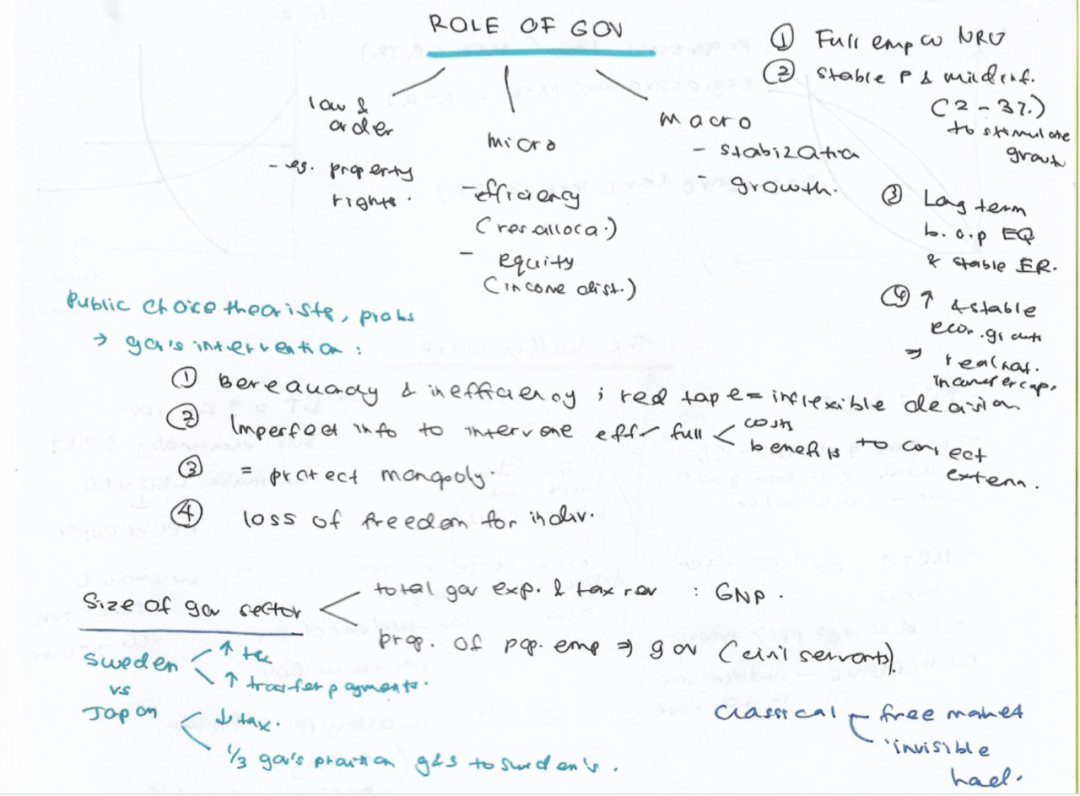 ROLE OF GOV
low &
order
- eg. property
rights.
micro
- efficiency
(res. alloca.)
- equity
(income dist.)
macro
- stabization
- growth.
① Full emp @ NRU
② stable P & mild inf.
(2-3%)
to stimulate
growth
③ Long term
b.o.p EQ
& stable ER.
④ ↑ & stable
econ. growth
⇒ real nat.
income per cap.
Public choice theorists, probs
→ gov's intervention :
① bereaucracy & inefficiency ; red tape = inflexible decision
② Imperfect info to intervene eff - full < costs
benefits to correct
extern.
③ = protect monopoly.
④ loss of freedom for indiv.
Size of gov sector < total gov exp. & tax rev : GNP.
prop. of pop. emp ⇒ gov (civil servants).
Sweden < ↑ tax
↑ transfer payments.
vs
Japan < ↓ tax.
1/3 gov's provision g&s to Sweden's.
Classical - free market
- 'invisible
hand.